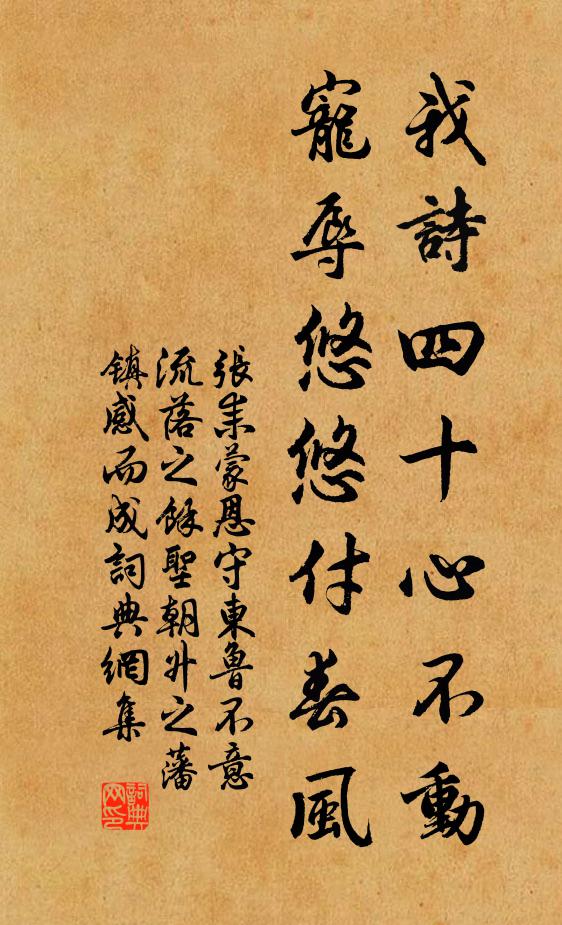 我詩四十心不動
寵辱悠悠付春風
張耒蒙恩守東魯不意
流落之餘聖朝升之藩
鎮感而成詞典網集
詞典
网印